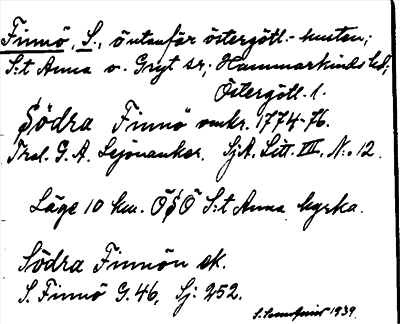 Finnö, S., ö utanför östergötl.-kusten;
S:t Anna o. Gryt sr; Hammarkinds hd;
Östergötl. l.
Södra Finnö omkr. 1774-76.
Trsl. G. A. Lejonancker. SjA. Litt. III, No. 12.
Läge 10 km. ÖSÖ S:t Anna kyrka.
Södra Finnön ek.
S. Finnö G. 46, Sj: 252.
1939.